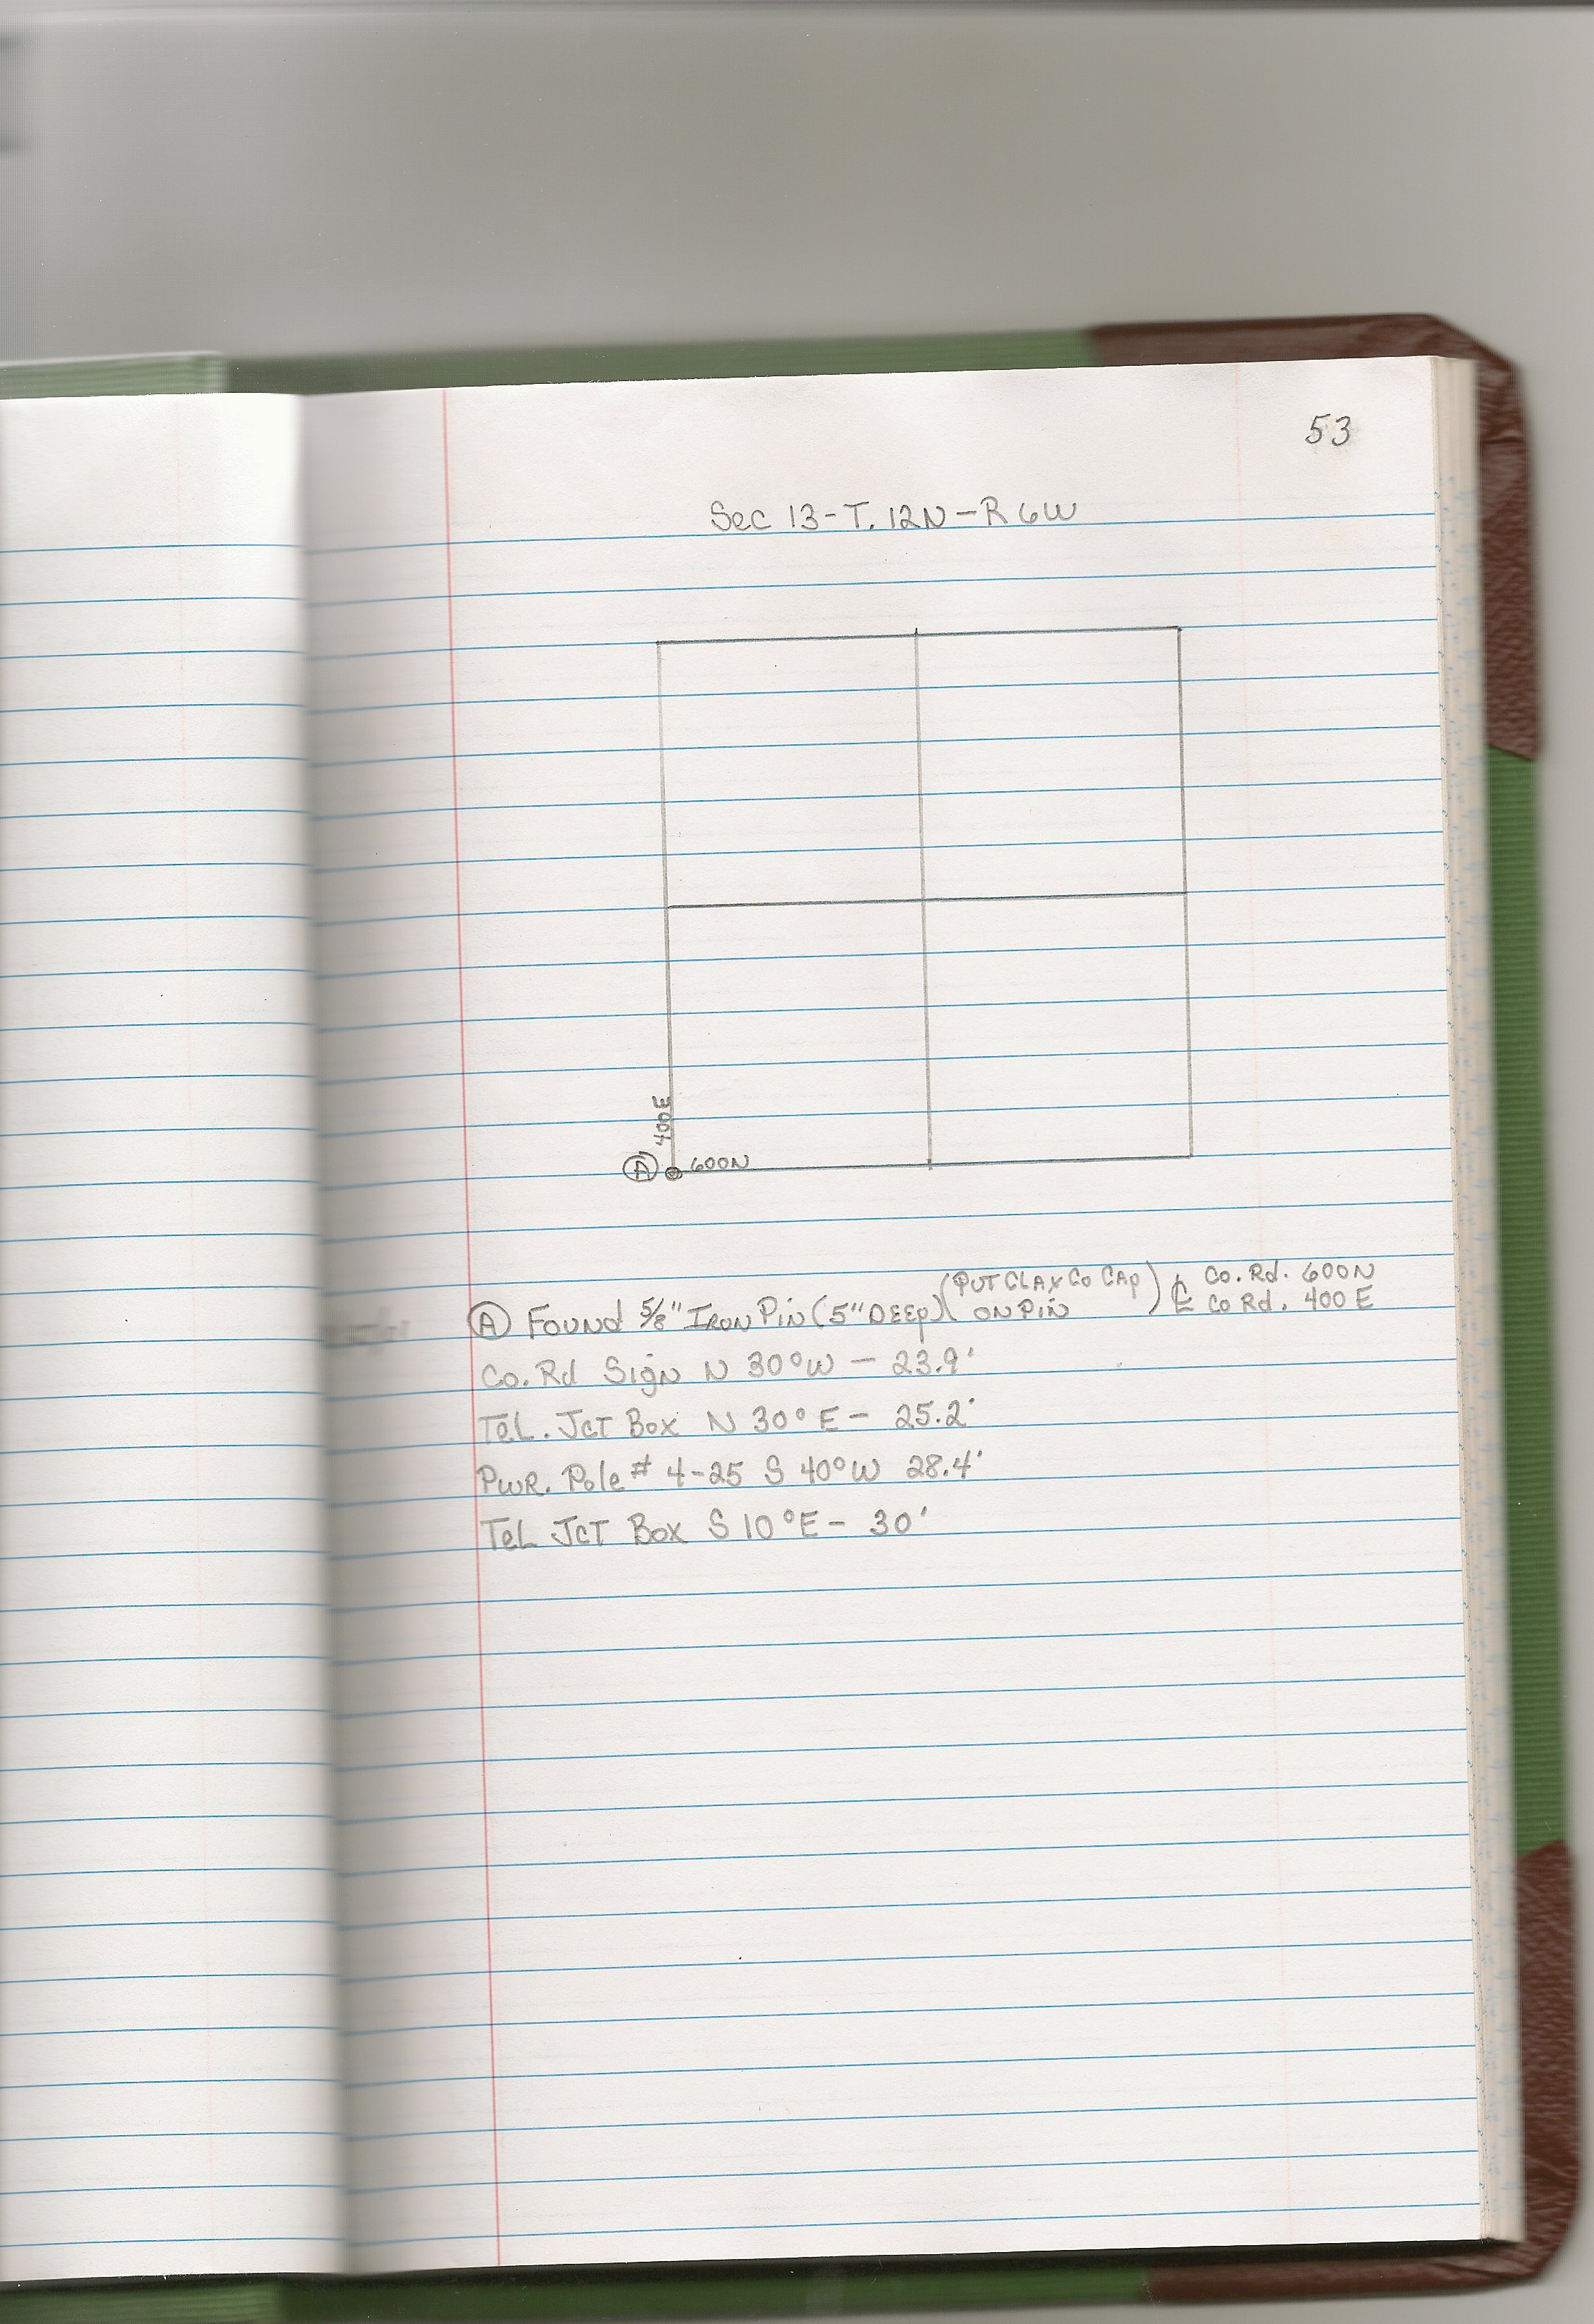 53
Sec 13-T. 12N-R 6W
400E
A 600N
A Found 5/8" Iron Pin (5" Deep) (Put Clay Co Cap on Pin) ℄ Co. Rd. 600N Co Rd. 400 E
Co. Rd Sign N 30° W - 23.9'
Tel. Jct Box N 30° E - 25.2'
Pwr. Pole # 4-25 S 40° W 28.4'
Tel Jct Box S 10° E - 30'